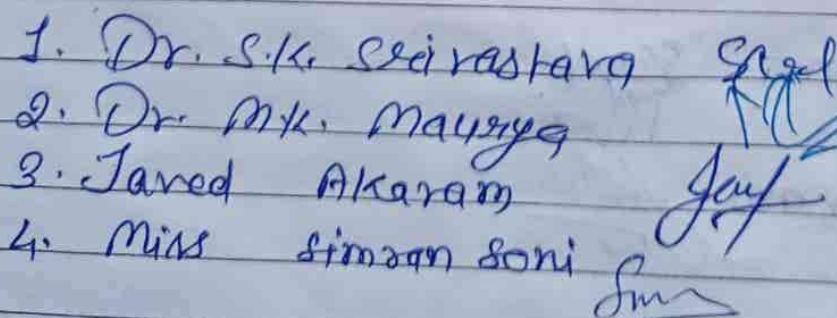 1. Dr. S.K. Srivastava
2. Dr. M.K. Maurya
3. Javed Akaram
4. Miss Simran Soni